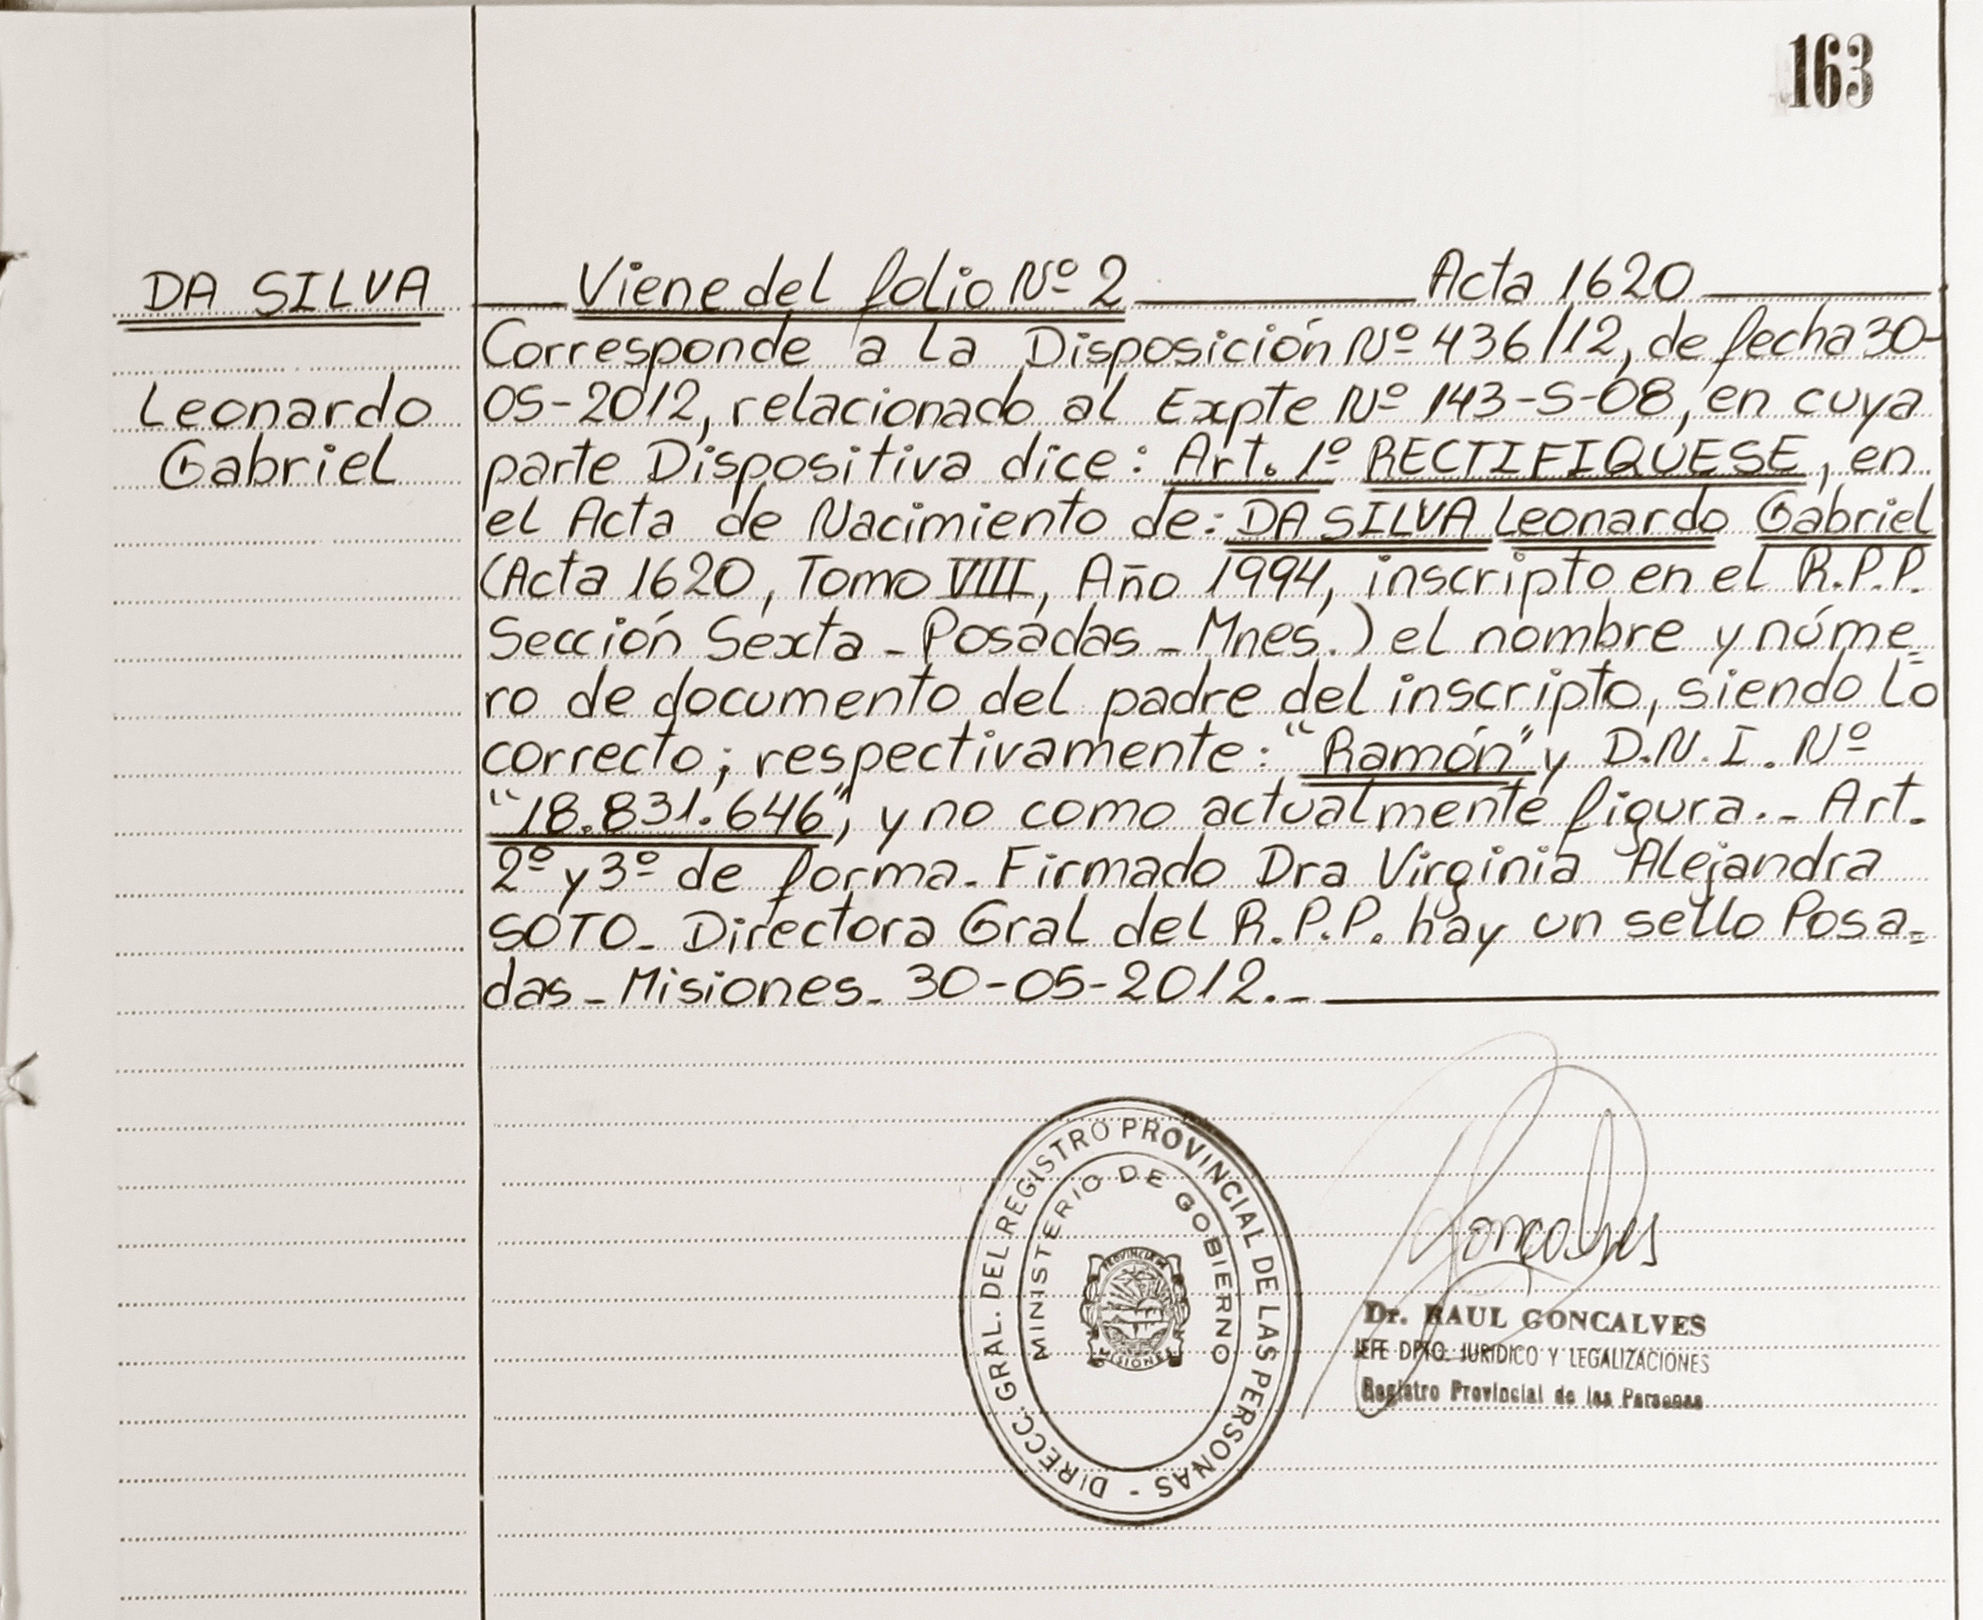 163
DA SILVA
Leonardo
Gabriel
Viene del folio Nº 2 Acta 1620
Corresponde a la Disposición Nº 436/12, de fecha 30-
05-2012, relacionado al Expte Nº 143-S-08, en cuya
parte Dispositiva dice: Art. 1º RECTIFIQUESE, en
el Acta de Nacimiento de: DA SILVA Leonardo Gabriel
(Acta 1620, Tomo VIII, Año 1994, inscripto en el R.P.P.
Sección Sexta - Posadas - Mnes.) el nombre y núme=
ro de documento del padre del inscripto, siendo lo
correcto; respectivamente: "Ramón" y D.N.I. Nº
"18.831.646", y no como actualmente figura.- Art.
2º y 3º de forma. Firmado Dra Virginia Alejandra
SOTO. Directora Gral del R.P.P. hay un sello Posa=
das - Misiones. 30-05-2012.-
DIRECC. GRAL. DEL REGISTRO PROVINCIAL DE LAS PERSONAS -
MINISTERIO DE GOBIERNO
PROVINCIA DE
MISIONES
Goncalves
Dr. RAUL GONCALVES
JEFE DPTO. JURIDICO Y LEGALIZACIONES
Registro Provincial de las Personas